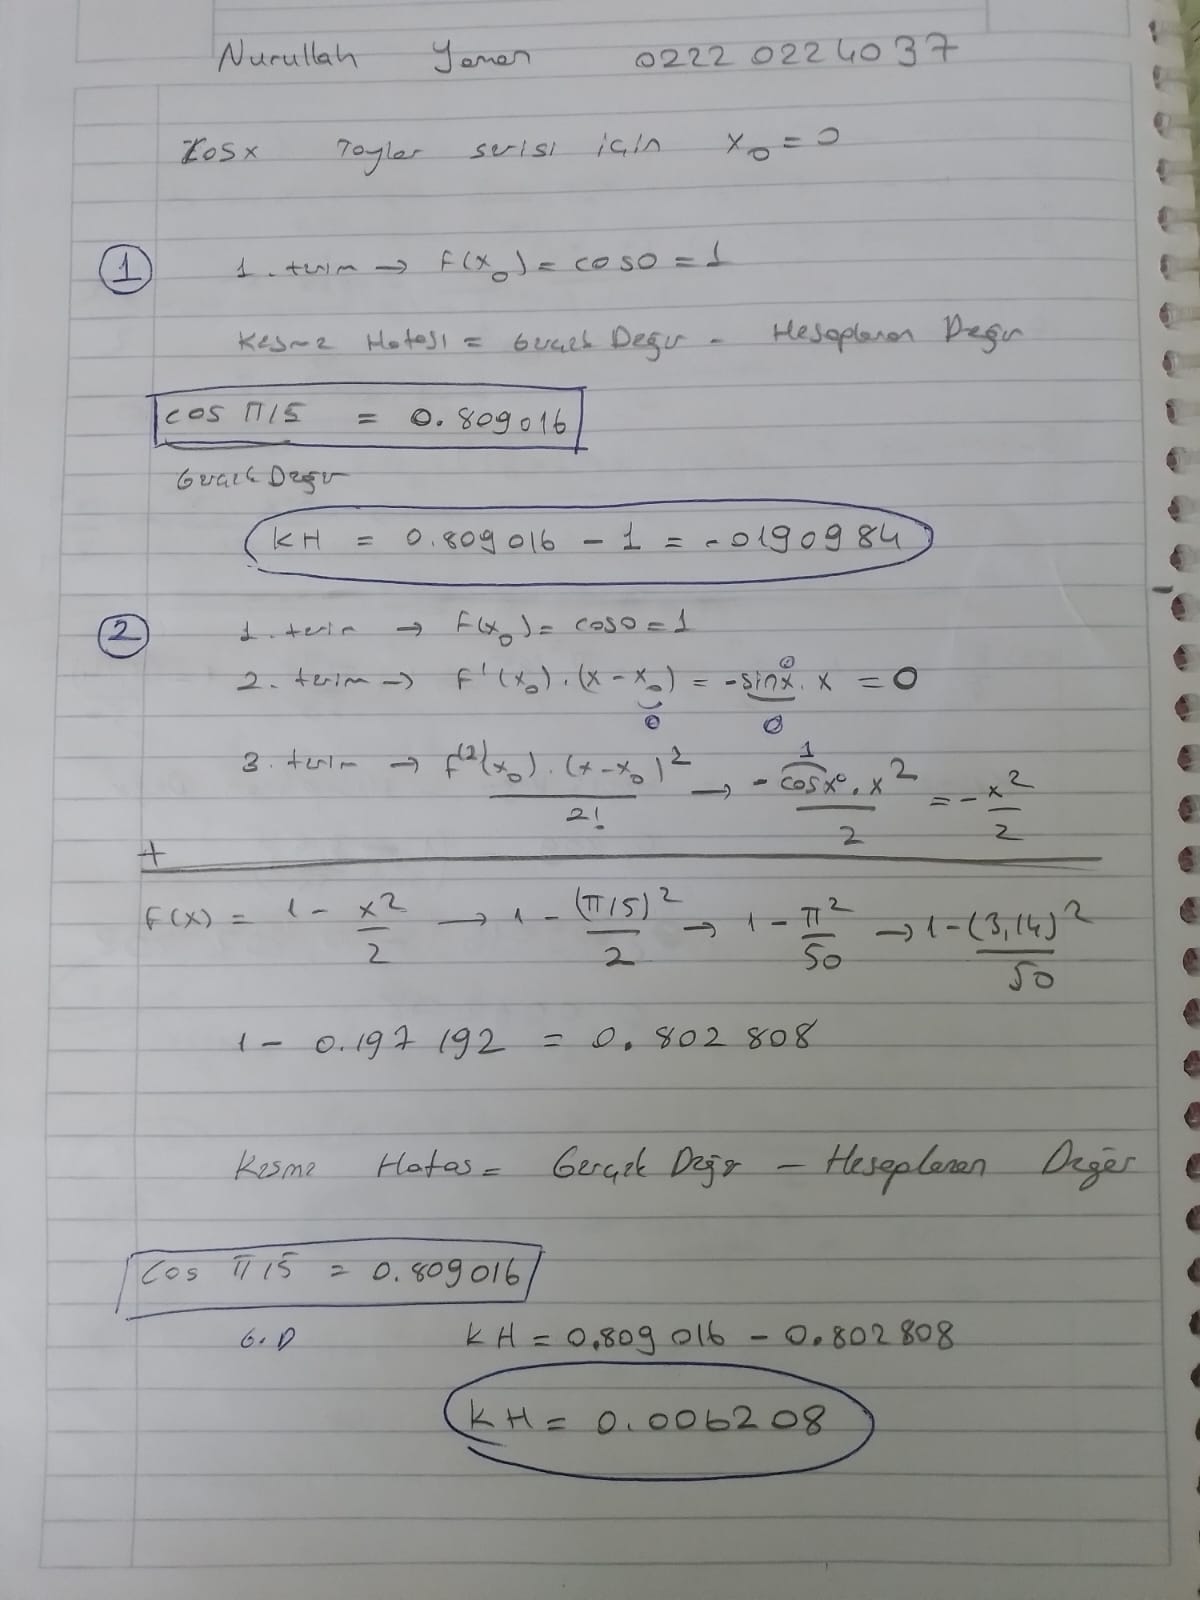 Nurullah Yaman 0222 022 4037
Kosx Taylar serisi için x₀ = 0
① 1. terim → F(x₀) = cos0 = 1
Kesme Hatası = Gerçek Değer - Hesaplanan Değer
cos π/5 = 0.809016
Gerçek Değer
KH = 0.809016 - 1 = -0190984
② 1. terim → F(x₀) = cos0 = 1
2. terim → F'(x₀).(x-x₀) = -sinx⁰.x = 0
0 0
3. terim → f⁽²⁾(x₀).(x-x₀)²/2! → -cosx⁰.x²/2 = -x²/2
1
+
F(x) = 1 - x²/2 → 1 - (π/5)²/2 → 1 - π²/50 → 1 - (3,14)²/50
1 - 0.197192 = 0.802808
Kesme Hatas = Gerçek Değer - Hesaplanan Değer
Cos π/5 = 0.809016
G.D KH = 0,809016 - 0.802808
KH = 0.006208